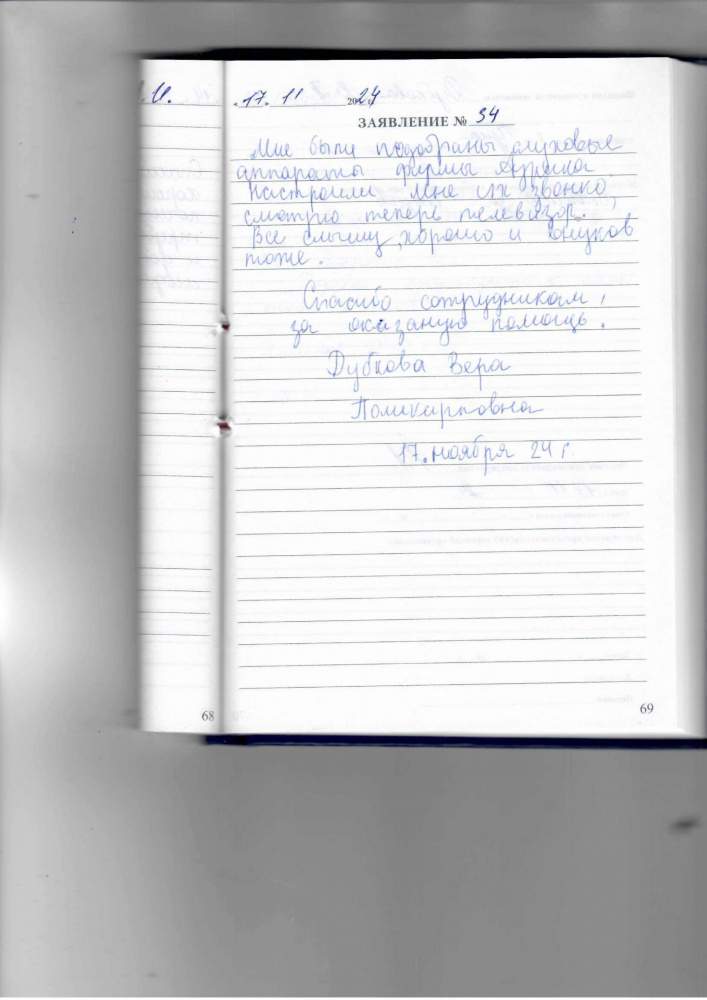 И.
17. 11 2024
ЗАЯВЛЕНИЕ № 34
Мне были подобраны слуховые
аппараты фирмы
Настроили мне их звонко,
смотрю теперь телевизор.
Все слышу, хорошо и внуков
тоже.
Спасибо сотрудникам,
за оказаную помощь.
Дубкова Вера
Поликарповна
17. ноября 24 г.
68
69